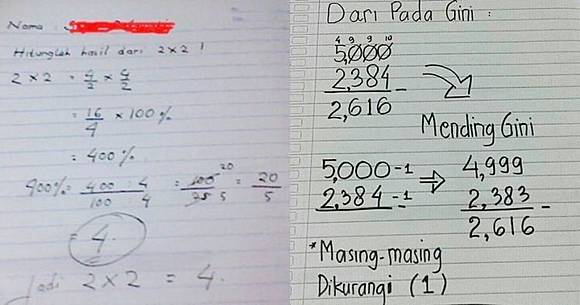 Nama :
Hitunglah hasil dari 2 x 2 !
2 x 2 = 4/2 x 4/2
= 16/4 x 100 %
= 400 %
400% = 400 : 4 / 100 : 4 = 100 20 / 25 5 = 20/5
= 4.
Jadi 2 x 2 = 4.
Dari Pada Gini :
4 9 9 10
5,000
2,384 -
2,616
Mending Gini
5,000 -1 → 4,999
2,384 -1 2,383 -
2,616
*Masing-masing
Dikurangi (1)